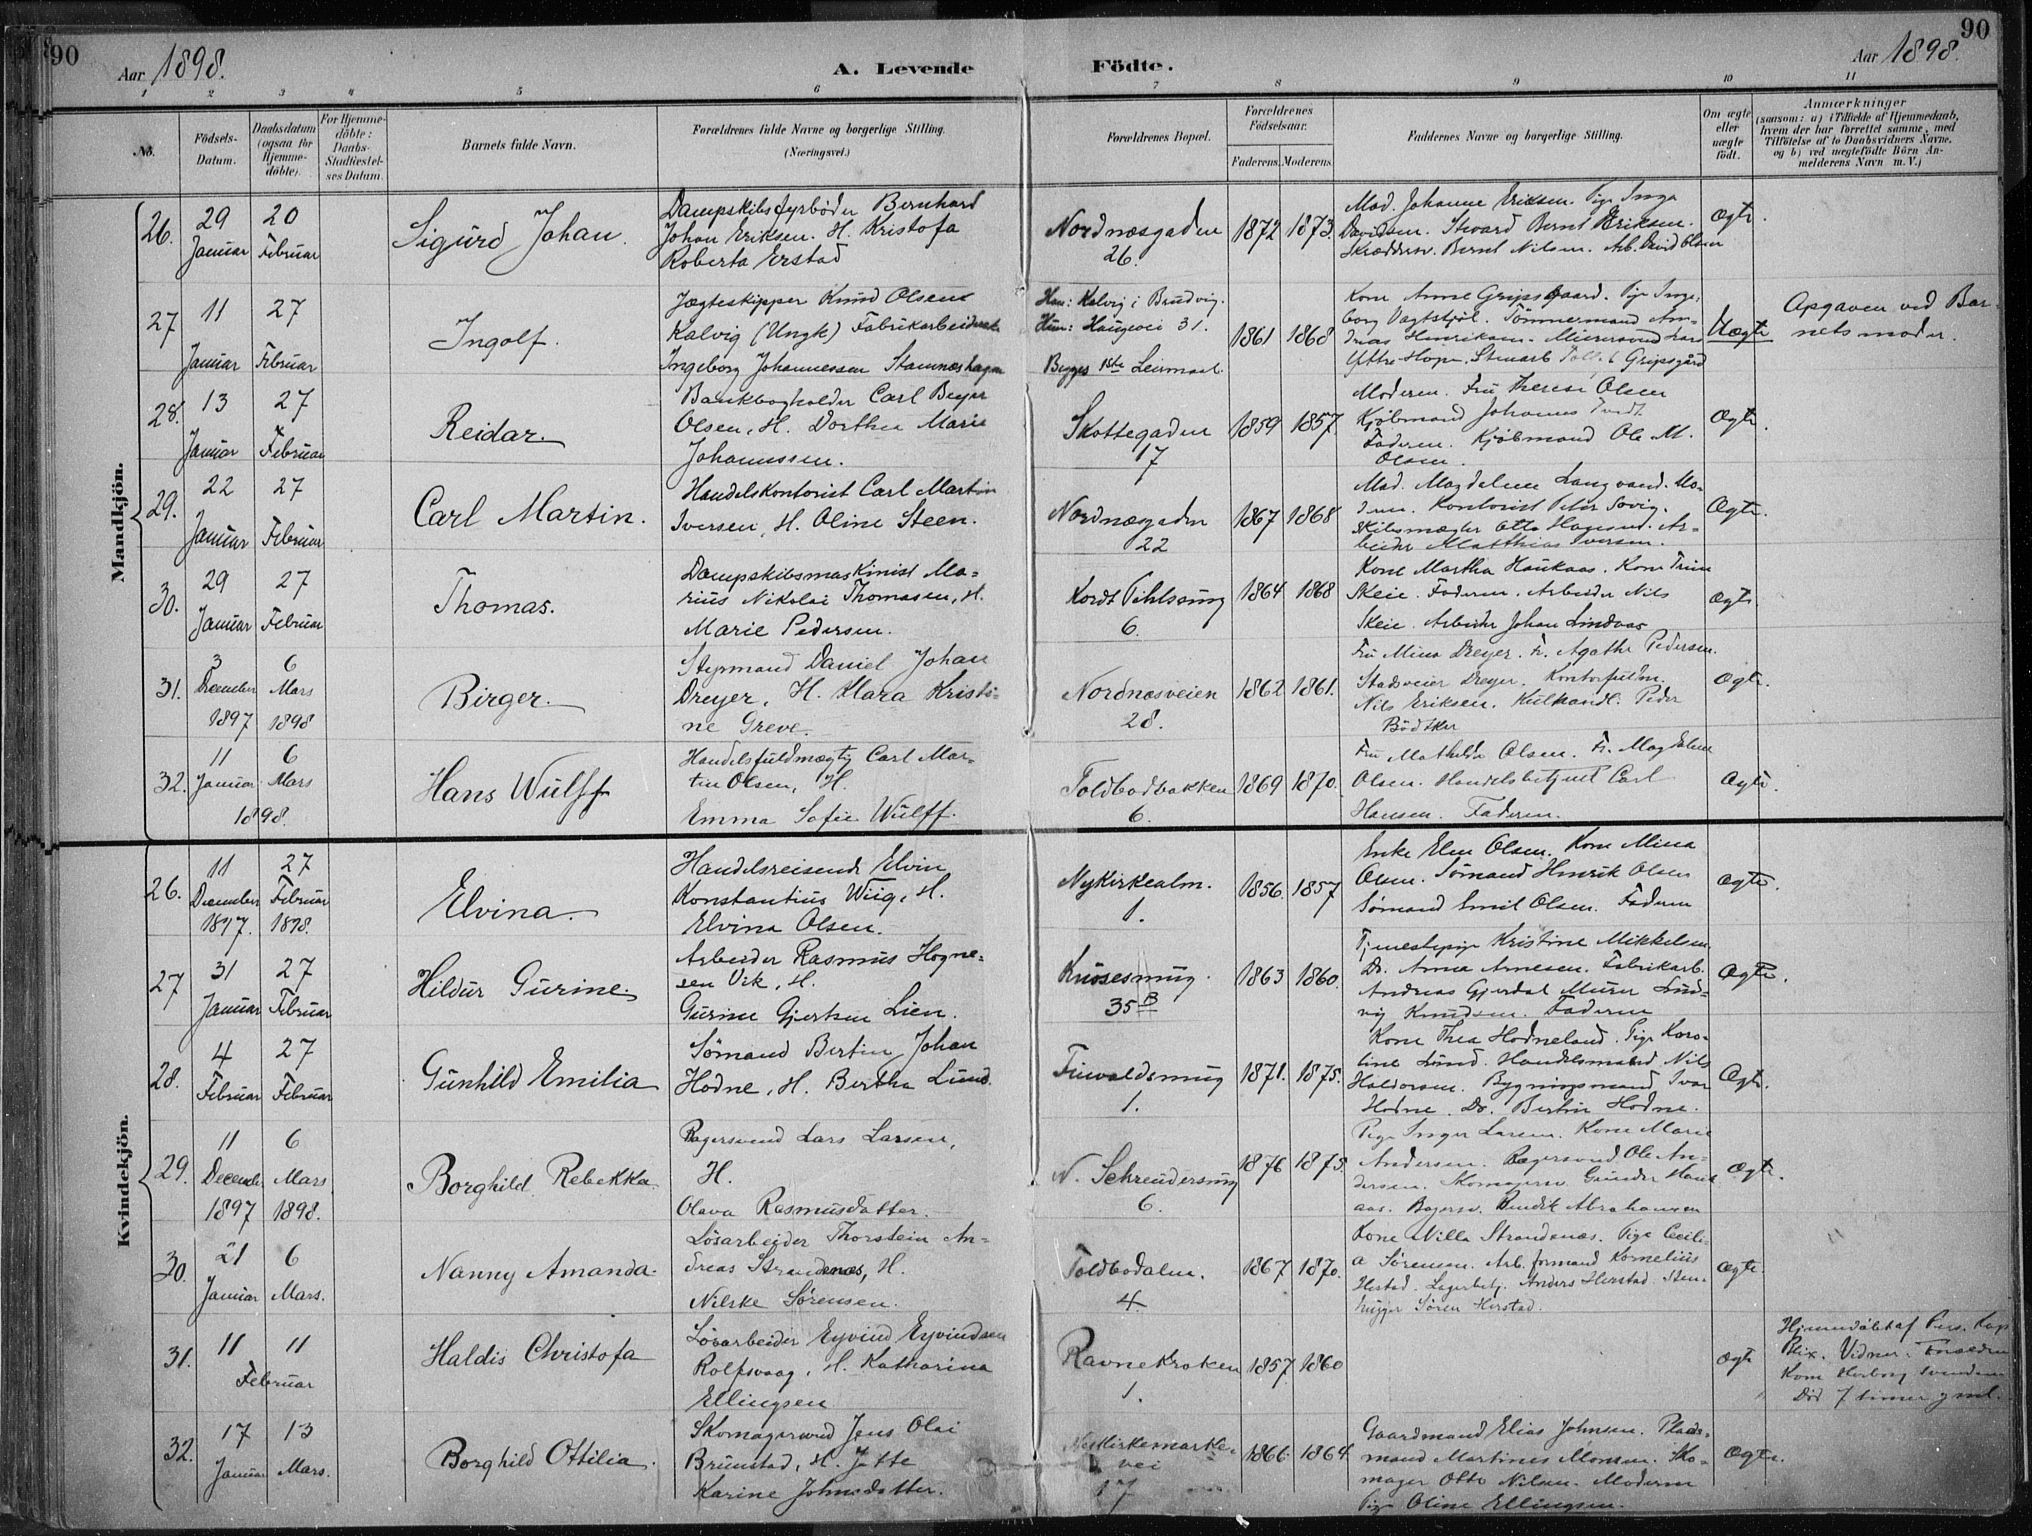 90
Aar 1898.
A. Levende
Födte.
Aar 1898.
90
1 2 3 4 5 6 7 8 9 10 11
No.
Födsels-
Datum.
Daabsdatum
(ogsaa for
Hjemme-
döbte).
For Hjemme-
döbte:
Daabs-
Stadfæstel-
ses Datum.
Barnets fulde Navn.
Forældrenes fulde Navne og borgerlige Stilling.
(Næringsvei.)
Forældrenes Bopæl.
Forældrenes
Födselsaar.
Faderens. Moderens.
Faddernes Navne og borgerlige Stilling.
Om ægte
eller
uægte
födt.
Anmærkninger
(saasom: a) i Tilfælde af Hjemmedaab,
hvem der har forrettet samme, med
Tilföielse af to Daabsvidners Navne,
og b) ved uægtefödte Börn An-
melderens Navn m. V.)
Mandkjön.
26.
29
Januar
20
Februar
Sigurd Johan.
Dampskibsfyrbøder Bernhard
Johan Eriksen. H. Kristofa
Roberta Erstad
Nordnæsgaden
26.
1872 1873.
Mad. Johanne Eriksen. Pige Inga
Davidsen. Stuard Bernt Eriksen.
Skrædderv. Bernt Nilsen. Arb. David Olsen
Ægte.
27
11
Januar
27
Februar
Ingolf.
Jægteskipper Knud Olsen
Kalvig (Ungk) Fabrikarbeiderske
Ingeborg Johannessen Stamneshagen
Han: Kalvig i Brudvig.
Hun: Haugevei 31.
Begges 1ste Leiermaal.
1861 1868
Kone Anne Gripsgaard. Pige Inge-
borg Vagtskjöl. Tömmermand An-
dreas Henriksen. Murersvend Lars
Yttre Hope. Stenarb. Gripsgård
Uægte
Opgaven ved Bar-
nets moder.
28.
13
Januar
27
Februar
Reidar.
Bankbogholder Carl Beyer
Olsen, H. Dorthea Marie
Johannssen.
Skottegaden
17
1859 1857.
Moderen. Fru Therese Olsen
Kjöbmand Johannes Tvedt
Faderen. Kjöbmand Ole M.
Olsen.
Ægte.
29.
22
Januar
27
Februar
Carl Martin.
Handelskontorist Carl Martin
Iversen, H. Oline Steen.
Nordnæsgaden
22
1867 1868
Mad. Magdalene Langvand. Mo-
deren. Kontorist Peter Sovig.
Skibsmægler Otto Hagesund. Ar-
beider Matthias Iversen.
Ægte.
30.
29
Januar
27
Februar
Thomas.
Dampskibsmaskinist Ma-
rius Nikolai Thomasen, H.
Marie Pedersen.
Kordt Pihlsmug
6.
1864 1868
Kone Martha Haukaas. Kone Trine
Skeie. Faderen. Arbeider Nils
Skeie. Arbeider Johan Lindvas
Ægte.
31.
3
December
1897
6
Mars
1898
Birger.
Styrmand Daniel Johan
Dreyer, H. Klara Kristi-
ne Greve.
Nordnæsveien
28.
1862 1861.
Fru Mina Dreyer. Fr. Agathe Pedersen.
Stadsveier Dreyer. Kontorfuldm.
Nils Eriksen. Kulhandl. Peder
Bödtker
Ægte.
32.
11
Januar
6
Mars
1898.
Hans Wulff
Handelsfuldmægtg Carl Mar-
tin Olsen, H.
Emma Sofie Wulff.
Toldbodbakken
6.
1869 1870.
Fru Mathilde Olsen. Fr. Magdalene
Olsen. Handelsbetjent Carl
Hansen. Faderen.
Ægte.
Kvindekjön.
26.
11
December
1897.
27
Februar
1898.
Elvina.
Handelsreisende Elvin
Konstantius Wiig, H.
Elvina Olsen.
Nykirkealm.
1.
1856. 1857
Enke Elen Olsen. Kone Mina
Olsen. Sömand Henrik Olsen
Sömand Emil Olsen. Faderen
Ægte.
27
31
Januar
27
Februar
Hildur Gurine.
Arbeider Rasmus Hogne-
sen Vik, H.
Gurine Gjertsen Lien.
Knøsesmug.
35B
1863 1860.
Tjenestepige Kristine Mikkelsen
Do. Anna Arnesen. Fabrikarb.
Andreas Gjerdal Murer Lud-
vig Knudsen. Faderen
Ægte.
28.
4
Februar
27
Februar
Gunhild Emilia
Sömand Bertin Johan
Hodne, H. Bertha Lund.
Finvaldsmug
1.
1871. 1875.
Kone Thea Hodneland. Pige Karo-
line Lund. Handelsmand Nils
Haldorsen. Bygningsmand Ivar
Hodne. Do. Bertin Hodne.
Ægte.
29.
11
December
1897
6
Mars
1898.
Borghild Rebekka.
Bagersvend Lars Larsen,
H.
Olava Rasmusdatter.
N. Schreudersmug
6.
1876 1875.
Pige Inger Larsen. Kone Marie
Andersen. Bagersvend Ole An-
dersen. Skomagersv. Gunder Hauk
aas. Bagersv. Bendik Abrahamsen
Ægte.
30.
21
Januar
6
Mars.
Nanny Amanda.
Lösarbeider Thorstein An-
dreas Strandenæs, H.
Nilske Sörensen.
Toldbodalm.
4.
1867 1870.
Kone Nilla Strandenæs. Pige Cecili-
a Sörensen. Arb. formand Kornelius
Hestad. Lagerbetj. Anders Herstad. Sten-
hugger Sören Herstad.
Ægte.
31.
11
11
Februar
Haldis Christofa
Lösarbeider Eyvind Eyvindsen
Rolfsvaag, H. Katharina
Ellingsen
Ravnekroken
1.
1857. 1860
Ægte
Hjemmedöbt af Pers. Kap
Blix. Vidner. Forældre
Kone Herborg Svendsen
Död 7 timer gml.
32.
17
Januar
13
Mars.
Borghild Ottilia.
Skomagersvend Jens Olai
Brunstad, H. Jette
Karine Johnsdatter.
Nykirkemarke-
vei
17
1866. 1864.
Gaardmand Elias Johnsen. Plads-
mand Martines Monsen. Sko-
mager Otto Nilsen. Moderen
Pige Oline Ellingsen.
Ægte.